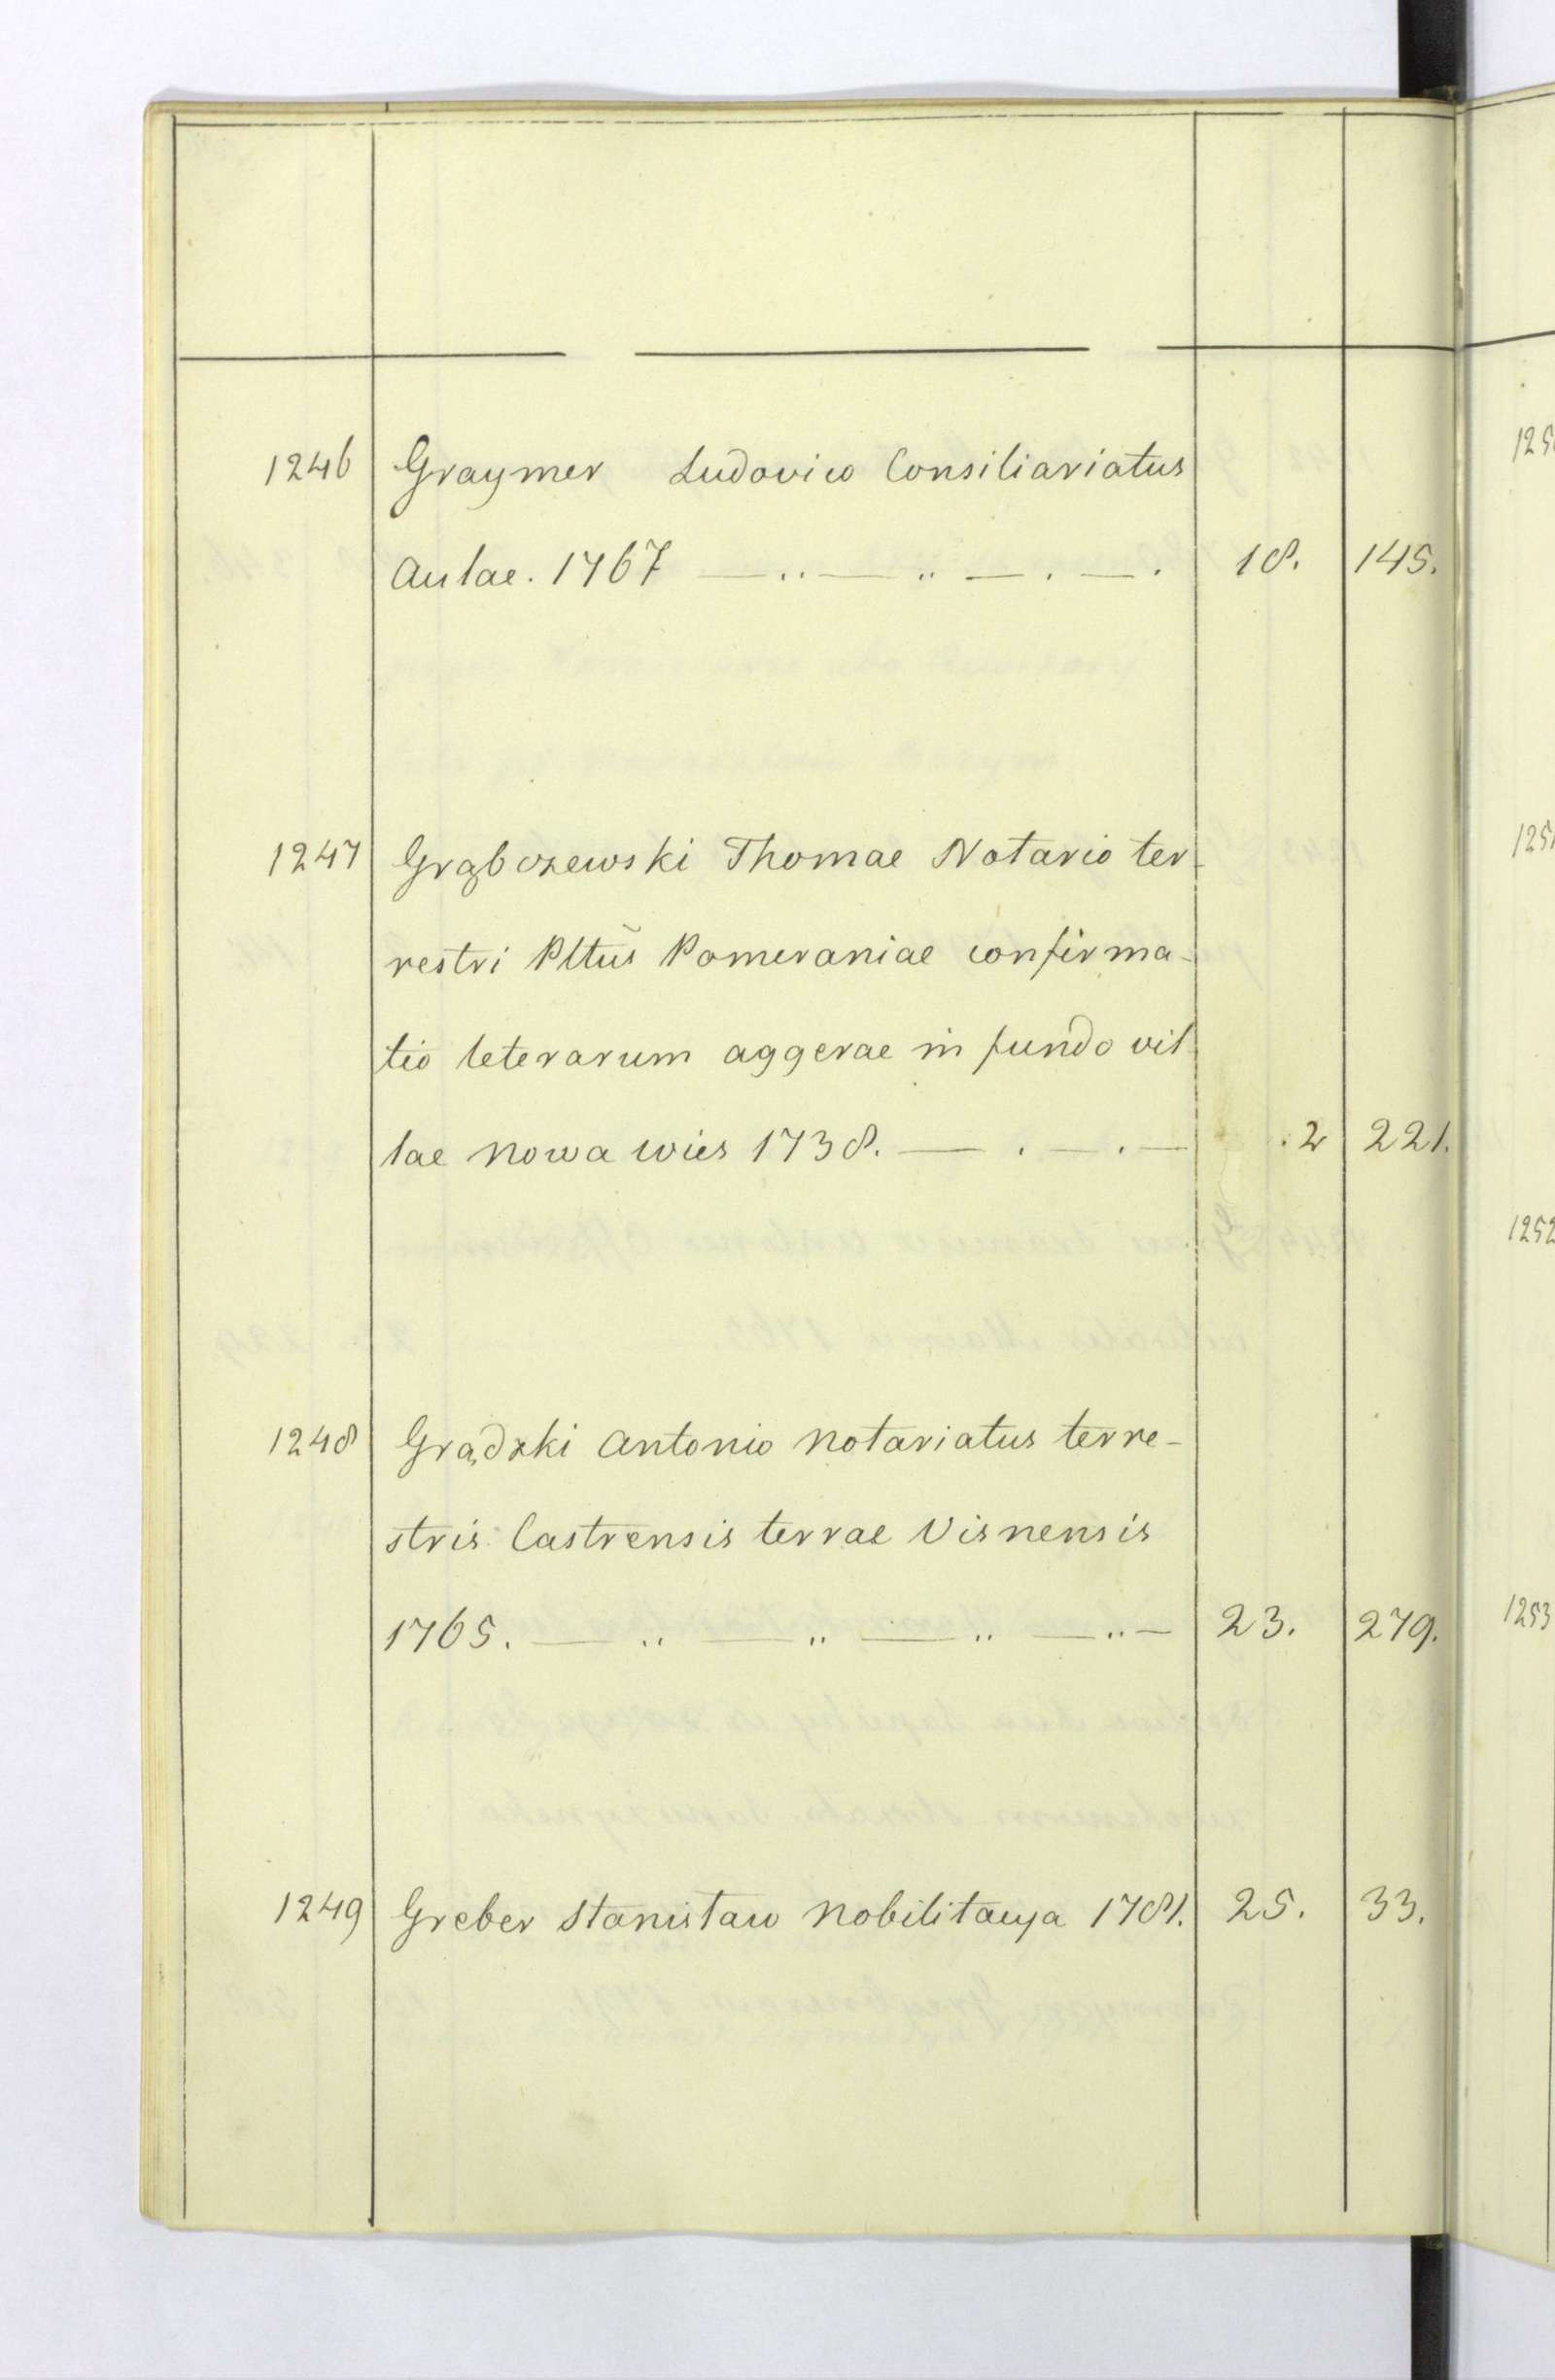 1246 Graymer Ludovico Consiliariatus
Aulae. 1767 — .. — .. — . — . 18. 145.
1247 Grąbczewski Thomae Notario ter-
restri Pltũs Pomeraniae confirma-
tio leterarum aggerae in fundo vil-
lae Nowa wies 1738. — . — . — . 2 221.
1248 Grądzki Antonio Notariatus terre-
stris Castrensis terrae Visnensis
1765. — .. — .. — .. — .. — 23. 279.
1249 Greber Stanisław Nobilitacya 1781. 25. 33.
1251
1252
1253